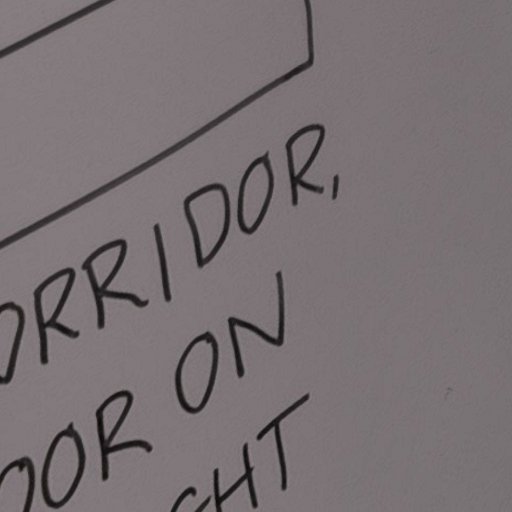 ORRIDOR,
OOR ON
GHT